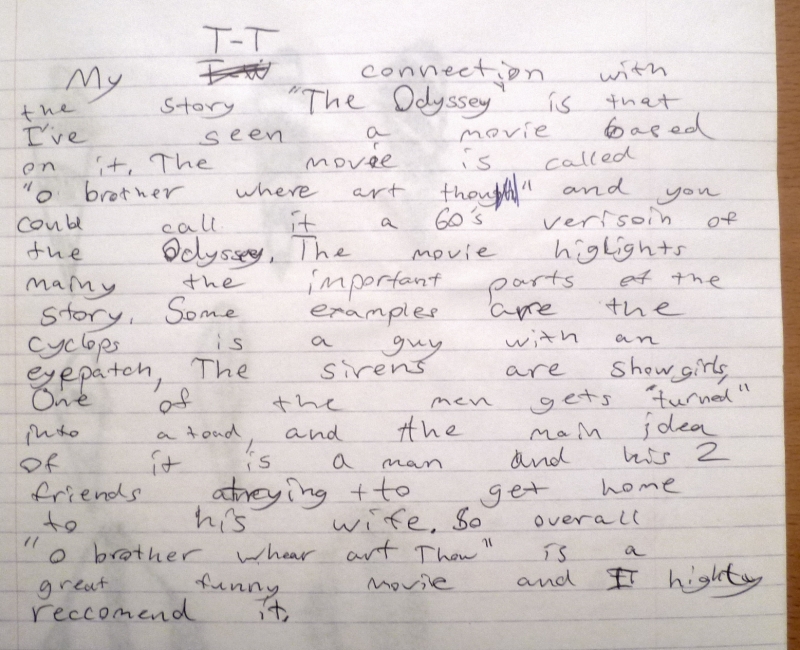 T-T
My connection with
the story "The Odyssey" is that
I've seen a movie based
on it. The movie is called
"o brother where art thou" and you
could call it a 60's verisoin of
the Odyssey. The movie highlights
mainy the important parts of the
story. Some examples are the
cyclops is a guy with an
eyepatch, The sirens are showgirls,
One of the men gets "turned"
into a toad, and the main idea
of it is a man and his 2
friends atreying to get home
to his wife. So overall
"o brother whear art Thou" is a
great funny movie and I highty
reccomend it.